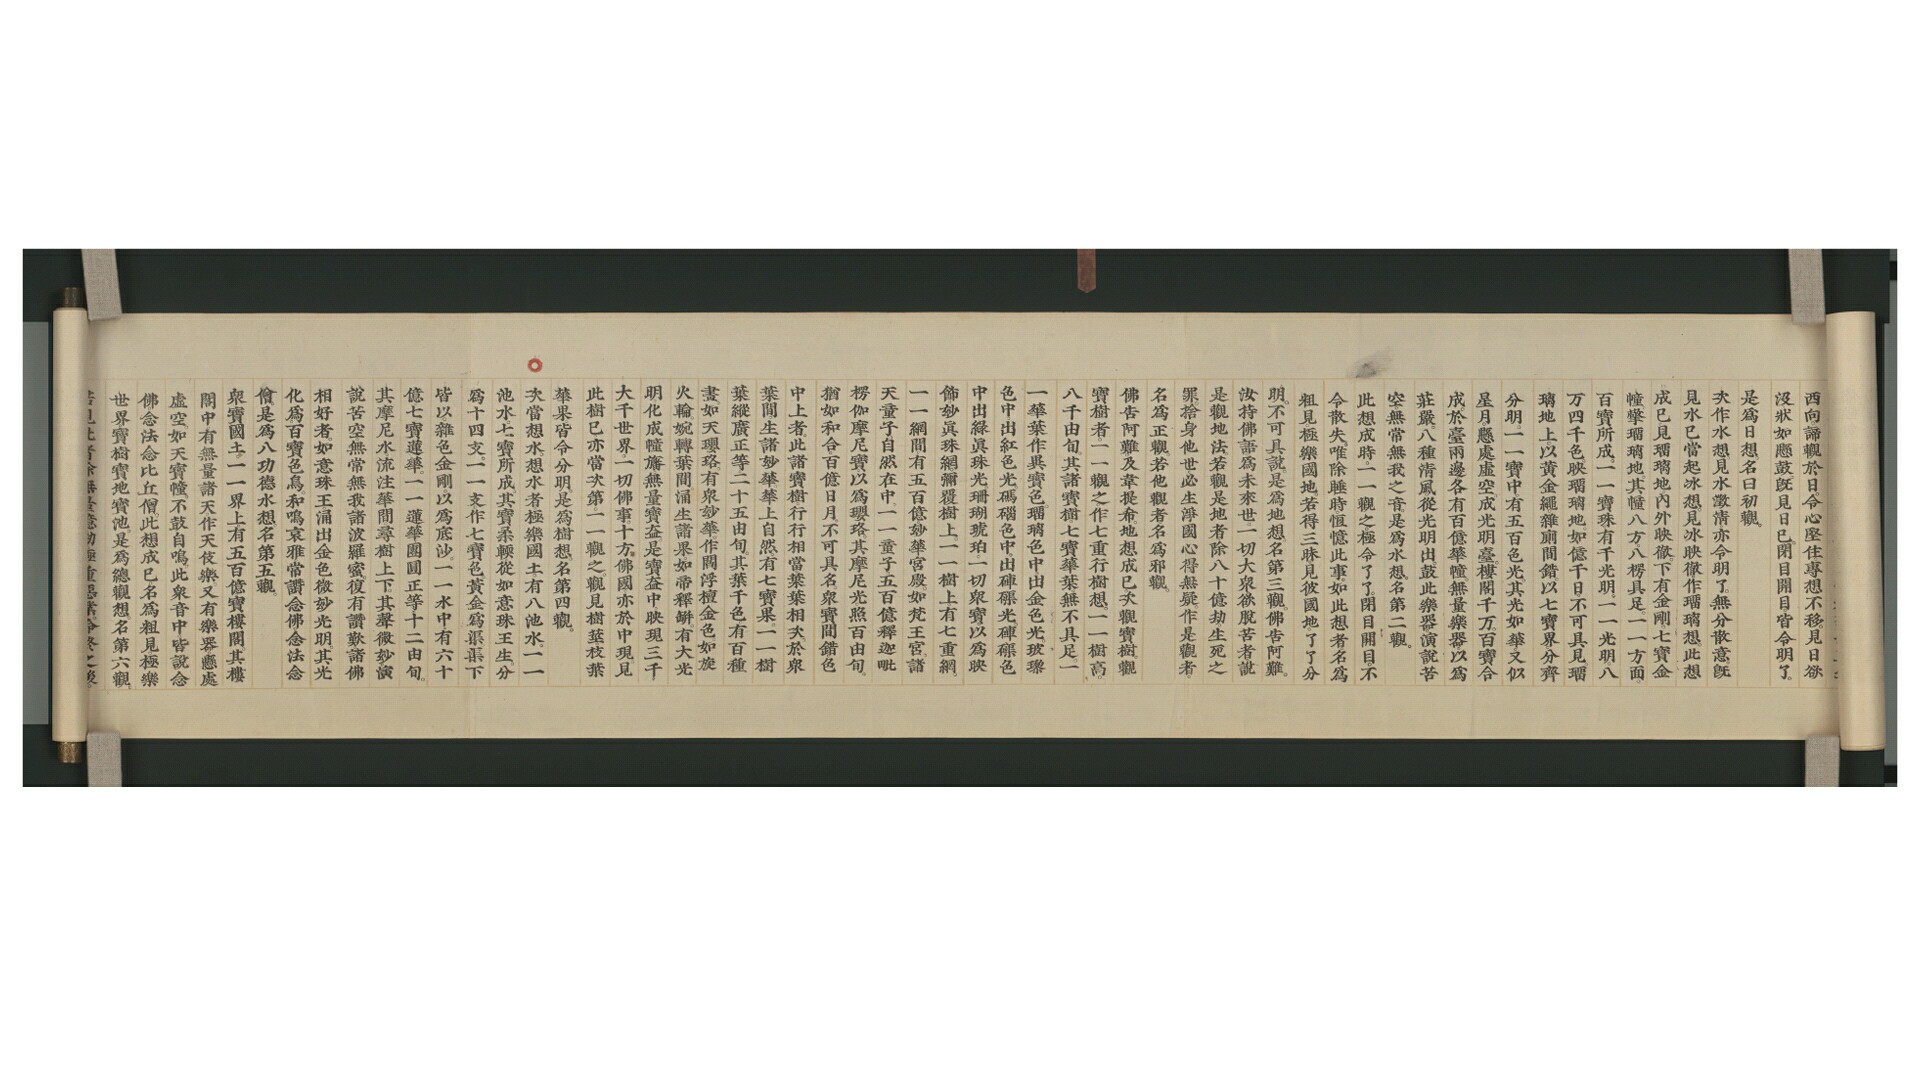 西向諦觀於日令心堅住專想不移見日欲
沒狀如懸鼓旣見日已閉目開目皆令明了
是爲日想名曰初觀
次作水想見水澂清亦令明了無分散意旣
見水已當起冰想見冰映徹作瑠璃想此想
成已見瑠璃地內外映徹下有金剛七寶金
幢擎瑠璃地其幢八方八楞具足一一方面
百寶所成一一寶珠有千光明一一光明八
万四千色映瑠璃地如億千日不可具見瑠
璃地上以黃金繩雜廁間錯以七寶界分齊
分明一一寶中有五百色光其光如華又似
星月懸處虛空成光明臺樓閣千万百寶合
成於臺兩邊各有百億華幢無量樂器以爲
莊嚴八種清風從光明出鼓此樂器演說苦
空無常無我之音是爲水想名第二觀
此想成時一一觀之極令了了閉目開目不
令散失唯除睡時恒憶此事如此想者名爲
粗見極樂國地若得三昧見彼國地了了分
明不可具說是爲地想名第三觀佛告阿難
汝持佛語爲未來世一切大衆欲脫苦者說
是觀地法若觀是地者除八十億劫生死之
罪捨身他世必生淨國心得無疑作是觀者
名爲正觀若他觀者名爲邪觀
佛告阿難及韋提希地想成已次觀寶樹觀
寶樹者一一觀之作七重行樹想一一樹高
八千由旬其諸寶樹七寶華葉無不具足一
一華葉作異寶色瑠璃色中出金色光玻瓈
色中出紅色光碼碯色中出硨磲光硨磲色
中出綠眞珠光珊瑚琥珀一切衆寶以爲映
飾妙眞珠網彌覆樹上一一樹上有七重網
一一網間有五百億妙華宮殿如梵王宮諸
天童子自然在中一一童子五百億釋迦毗
楞伽摩尼寶以爲瓔珞其摩尼光照百由旬
猶如和合百億日月不可具名衆寶間錯色
中上者此諸寶樹行行相當葉葉相次於衆
葉間生諸妙華華上自然有七寶果一一樹
葉縱廣正等二十五由旬其葉千色有百種
畫如天瓔珞有衆妙華作閻浮檀金色如旋
火輪婉轉葉間涌生諸果如帝釋缾有大光
明化成幢旛無量寶蓋是寶蓋中映現三千
大千世界一切佛事十方佛國亦於中現見
此樹已亦當次第一一觀之觀見樹莖枝葉
華果皆令分明是爲樹想名第四觀
次當想水想水者極樂國土有八池水一一
池水七寶所成其寶柔輭從如意珠王生分
爲十四支一一支作七寶色黃金爲渠渠下
皆以雜色金剛以爲底沙一一水中有六十
億七寶蓮華一一蓮華團圓正等十二由旬
其摩尼水流注華間尋樹上下其聲微妙演
說苦空無常無我諸波羅蜜復有讚歎諸佛
相好者如意珠王涌出金色微妙光明其光
化爲百寶色鳥和鳴哀雅常讚念佛念法念
僧是爲八功德水想名第五觀
衆寶國土一一界上有五百億寶樓閣其樓
閣中有無量諸天作天伎樂又有樂器懸處
虛空如天寶幢不鼓自鳴此衆音中皆說念
佛念法念比丘僧此想成已名爲粗見極樂
世界寶樹寶地寶池是爲總觀想名第六觀
若見此者除無量億劫極重惡業命終之後